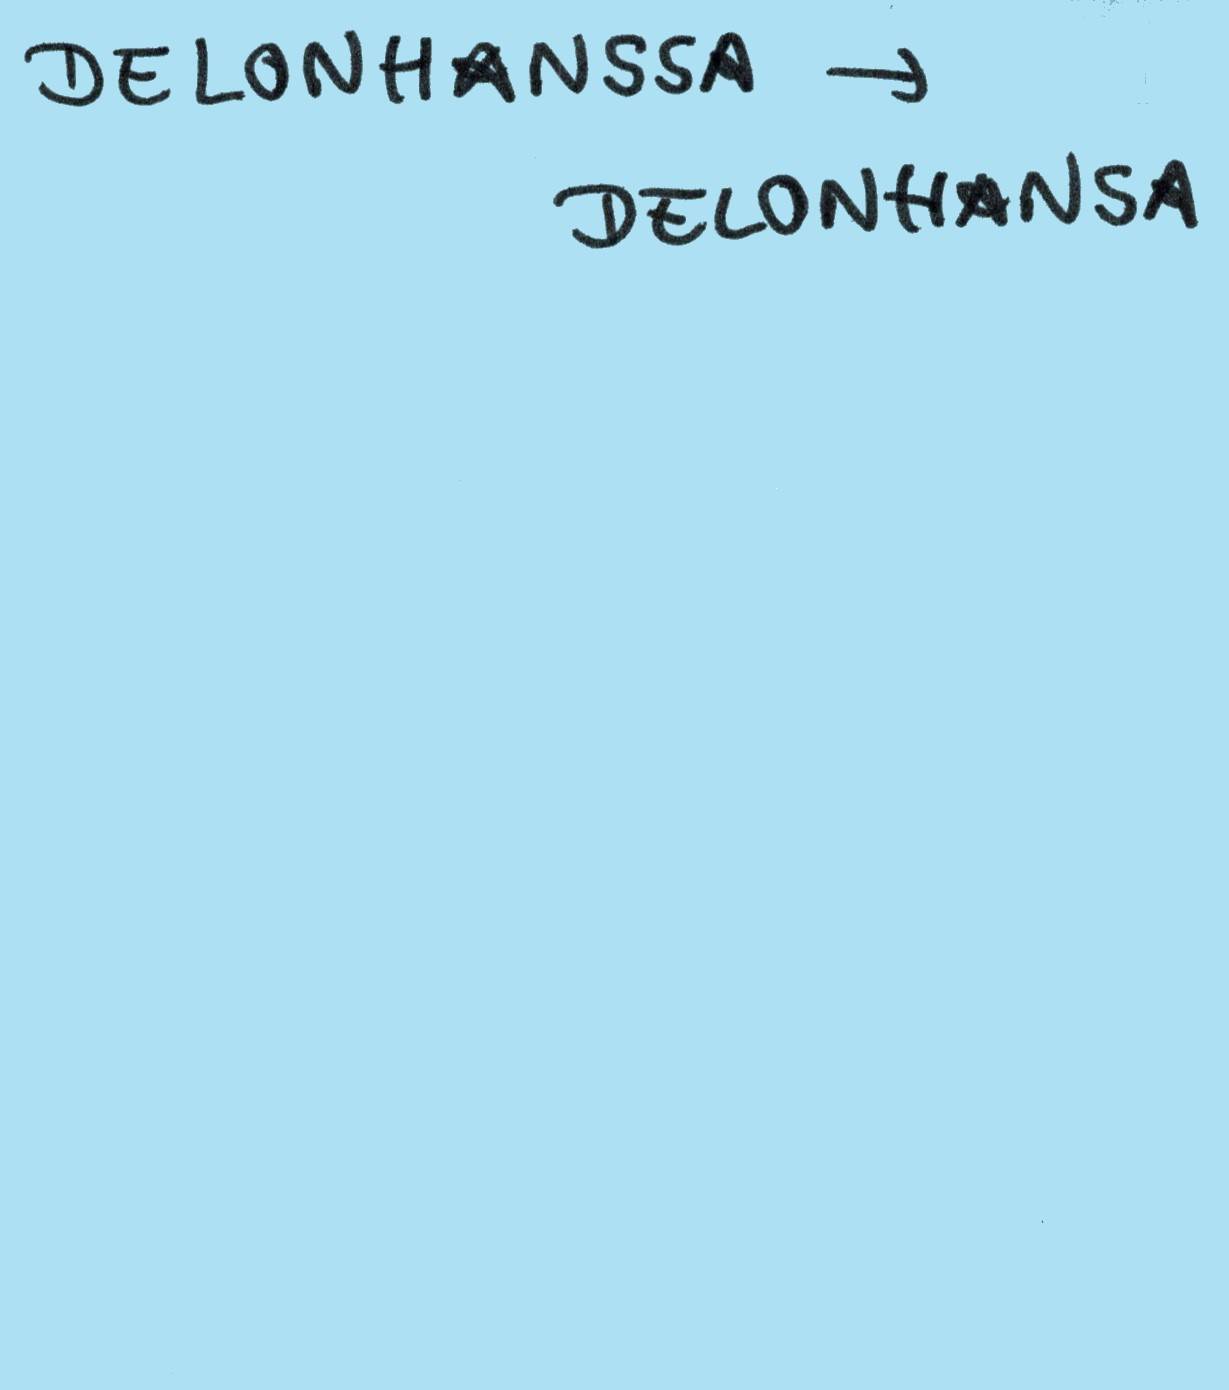 DELONHANSSA →
DELONHANSA